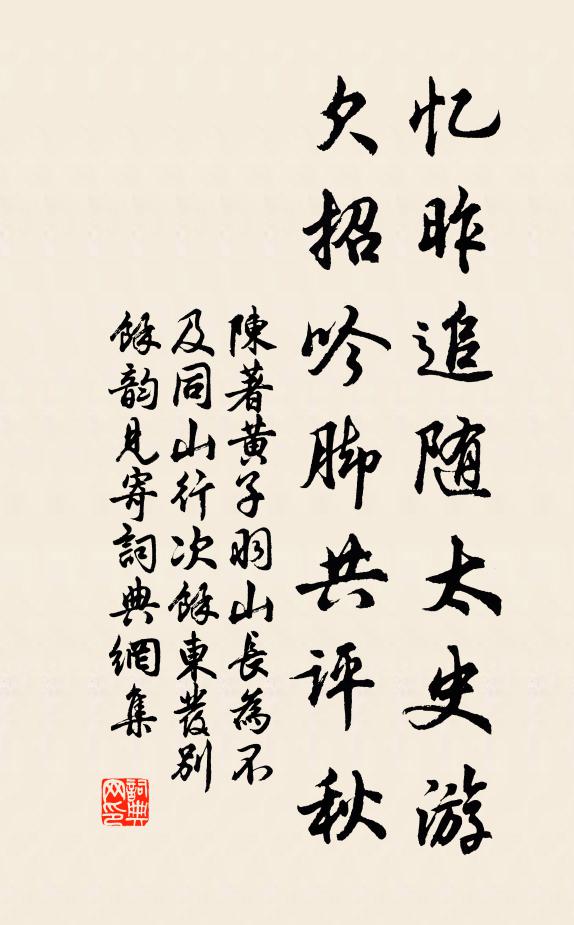 忆昨追随太史游
欠招吟脚共评秋
陳著黄子羽山長為不
及同山行次餘東發别
餘韵見寄詞典網集
詞典
网印